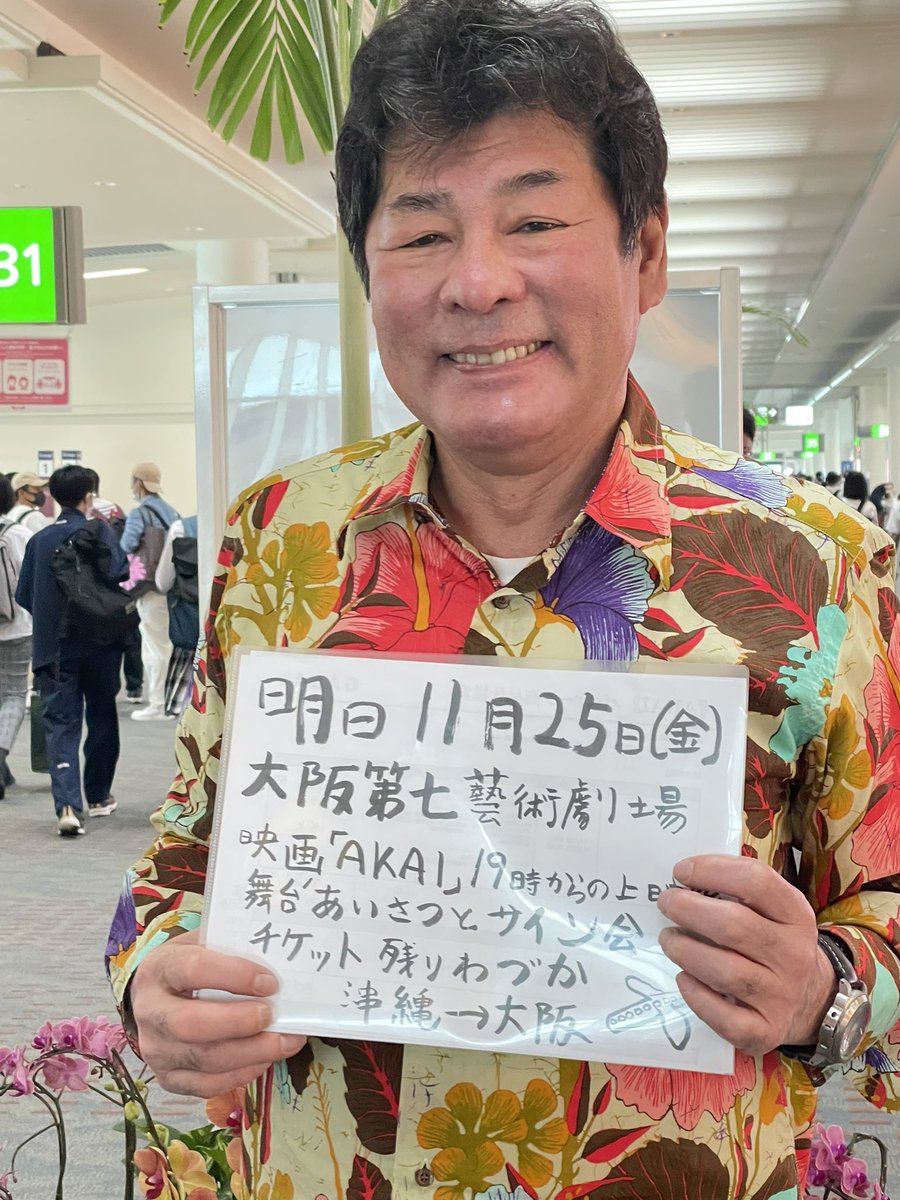 31
1
明日 11月25日(金)
大阪第七藝術劇場
映画「AKAI」19時からの上映
舞台あいさつとサイン会
チケット残りわづか
沖縄→大阪